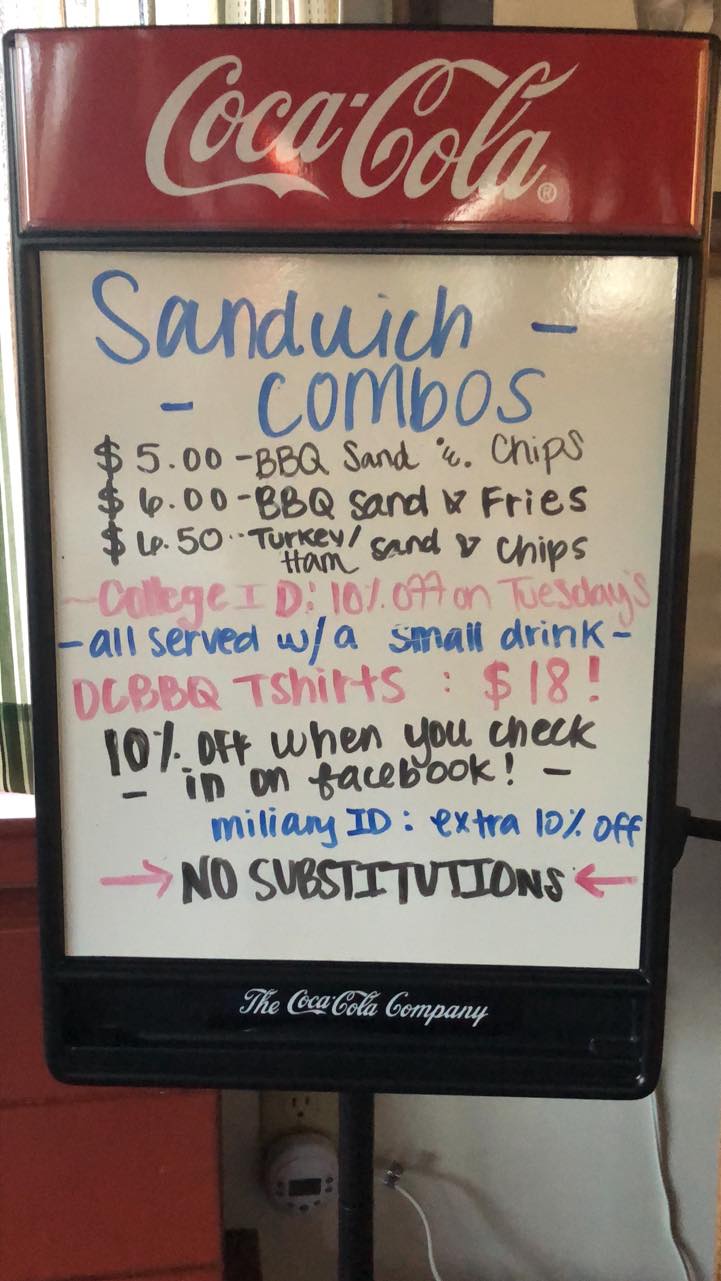 Coca-Cola®
Sandwich -
- combos
$ 5.00 - BBQ Sand & Chips
$ 6.00 - BBQ sand & Fries
$ 6.50 - Turkey/Ham sand & Chips
- College ID: 10% off on Tuesday's
- all served w/a small drink -
DCBBQ Tshirts : $18!
10% off when you check
- in on facebook! -
miliary ID: extra 10% off
→ NO SUBSTITUTIONS ←
The Coca-Cola Company